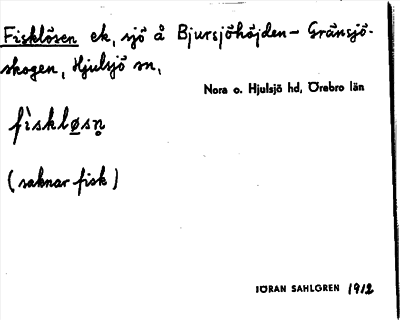 Fisklösen ek, sjö å Bjursjöhöjden - Gränsjö-
skogen, Hjulsjö sn,
Nora o. Hjulsjö hd, Örebro län
fìskløsn̥
(saknar fisk)
JÖRAN SAHLGREN 1912